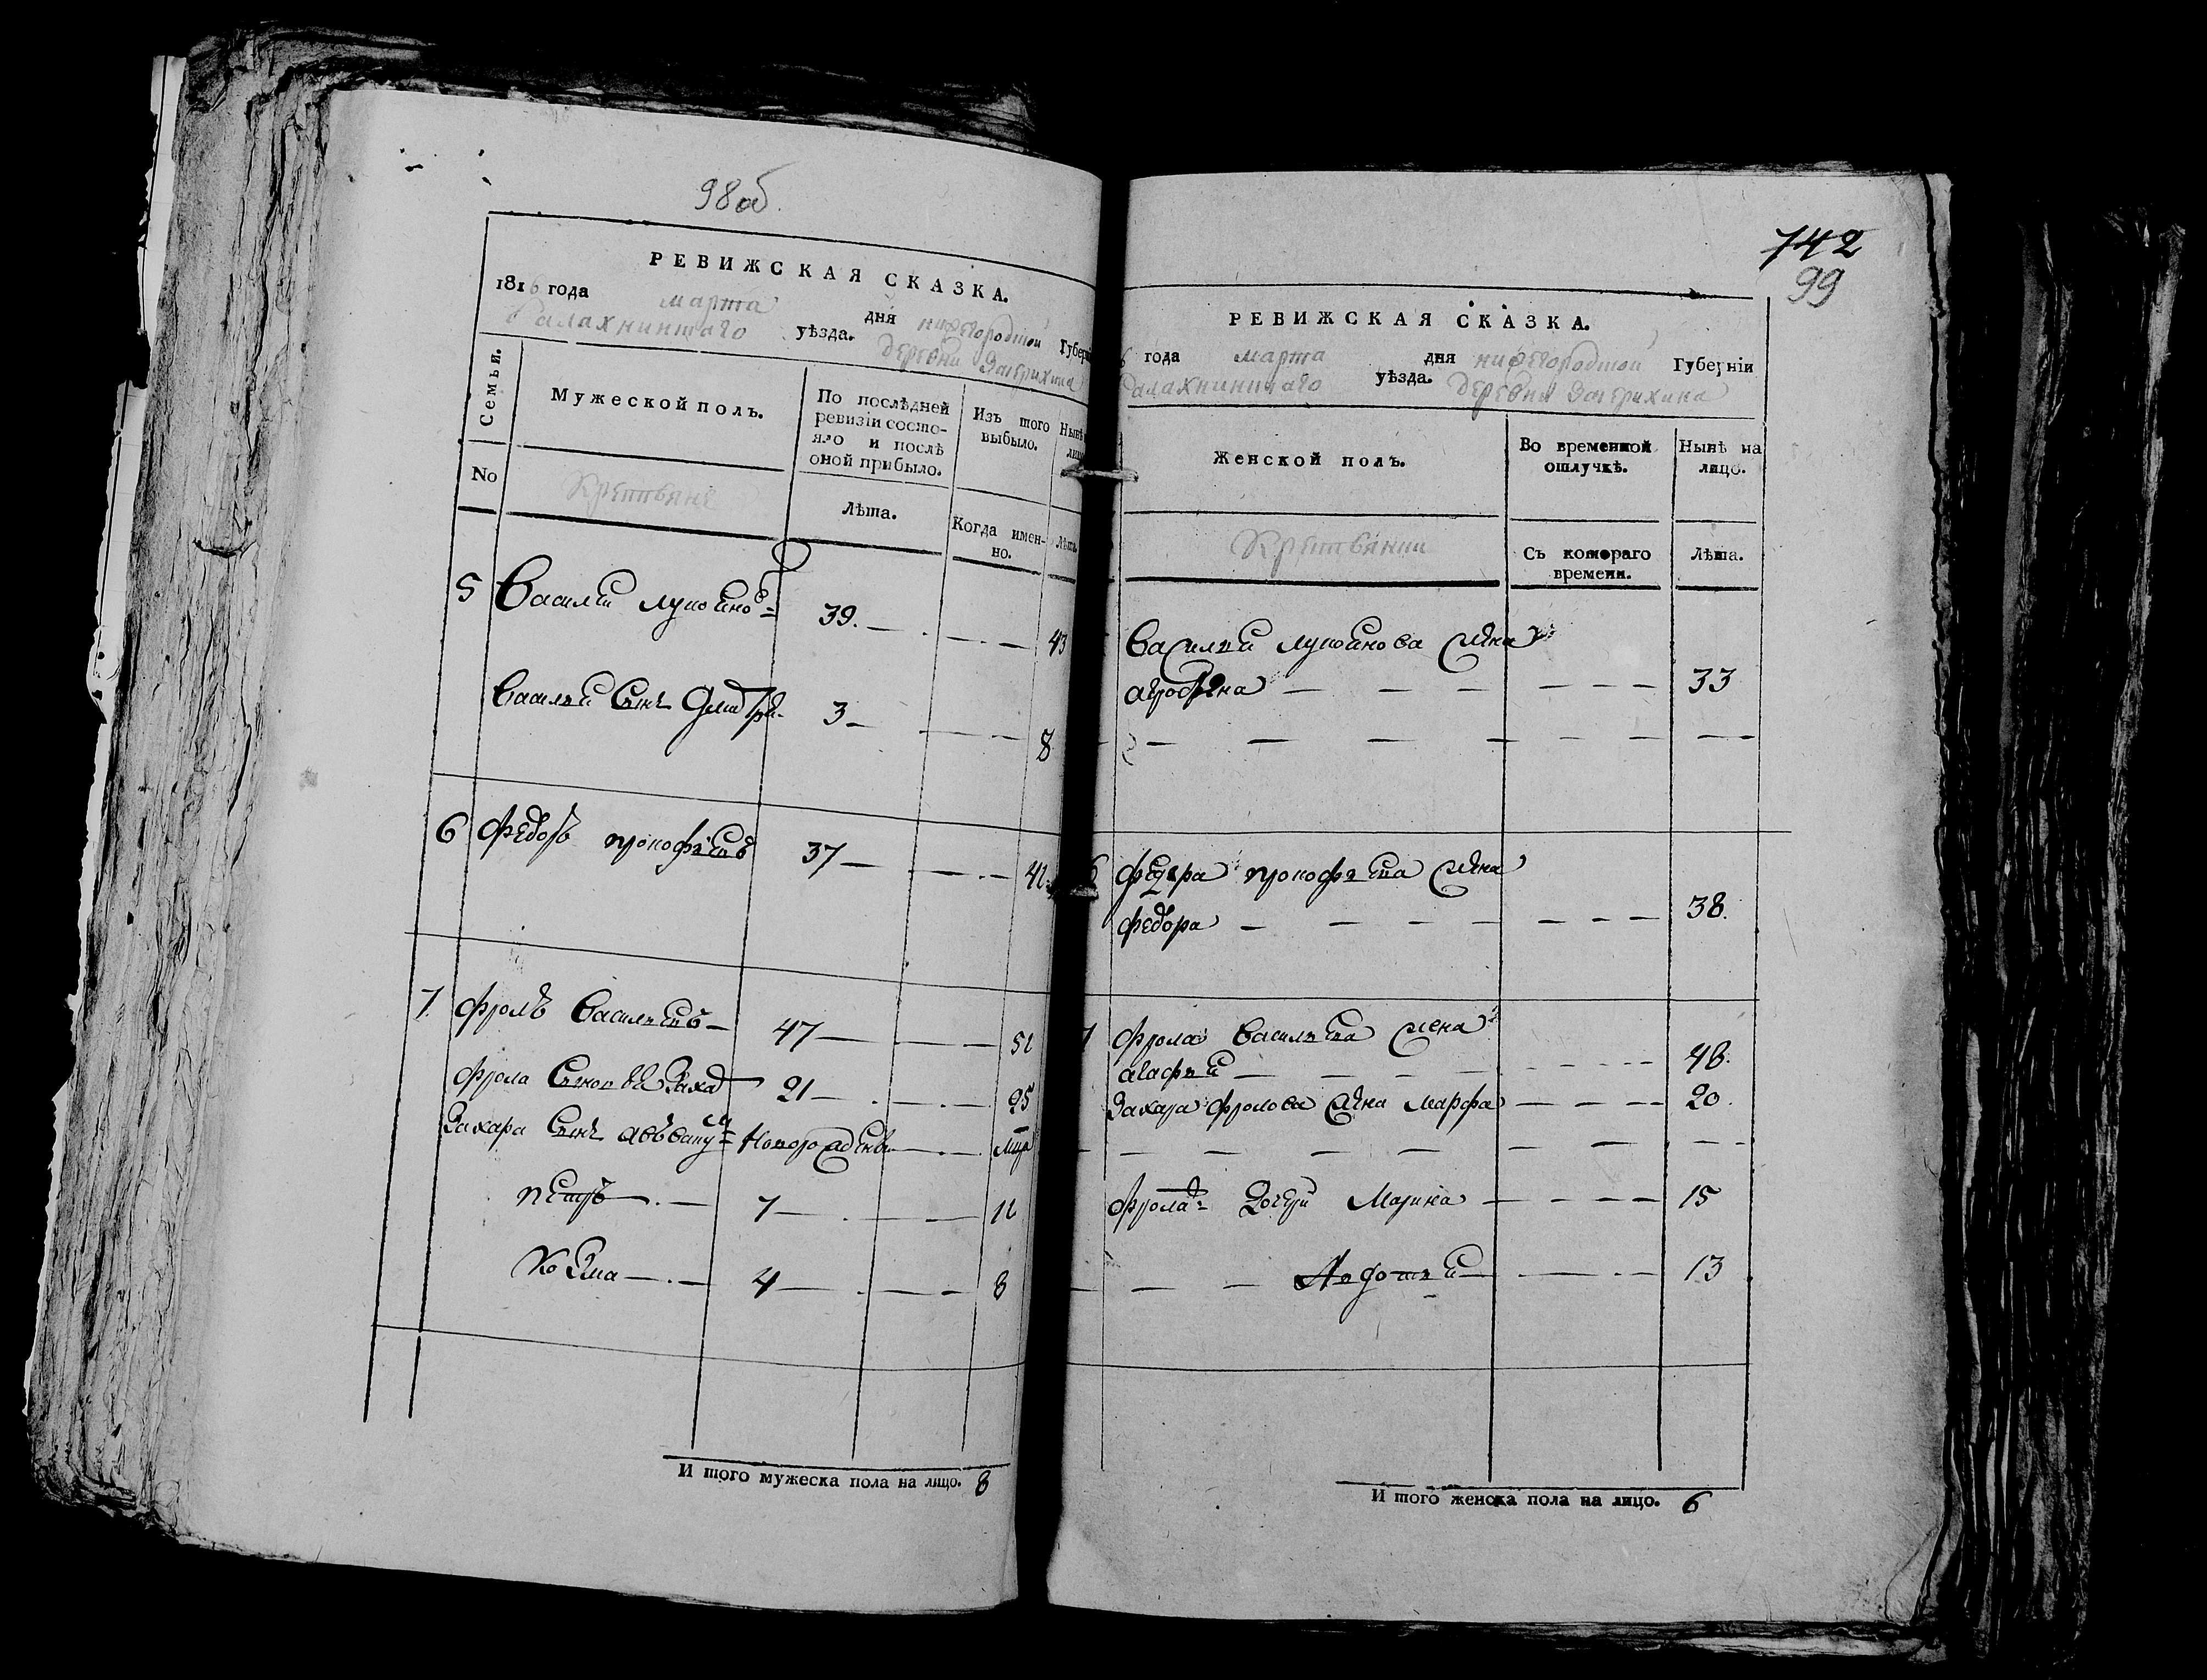 98 об.
РЕВИЖСКАЯ СКАЗКА.
1816 года марта дня нижегородской Губерні
Балахнинскаго уѣзда. деревни
Семьи.
Мужеской полъ.
По послѣдней ревизіи состо-
яло и послѣ оной прибыло.
Изъ того выбыло.
Нынѣ
лицо
No
Крестьяне
Лѣта.
Когда имен-
но.
Лѣта.
5 Василей 39. 43
Василья Сынъ Дмитрей 3 8
6 Федоръ прокофьевъ 37 42
7. Фролъ Васильевъ 47 52
Фрола Сыновья Заха 21 25
Захара Сынъ Новорожденъ
петръ 7 12
Козма 4 8
И того мужеска пола на лицо. 8
742
99
РЕВИЖСКАЯ СКАЗКА.
6 года марта дня нижегородской Губерніи
Балахнинскаго уѣзда. деревни
Женской полъ.
Во временной
отлучкѣ.
Нынѣ на
лицо.
Крестьянки
Съ котораго
времени.
Лѣта.
Василья жена
33
6 федора прокофьева жена
федора 38.
7 Фрола Васильева жена
агафья 48.
Захара фролова жена марфа 20.
Фрола дочери Марина 15
Авдотья 13
И того женска пола на лицо. 6